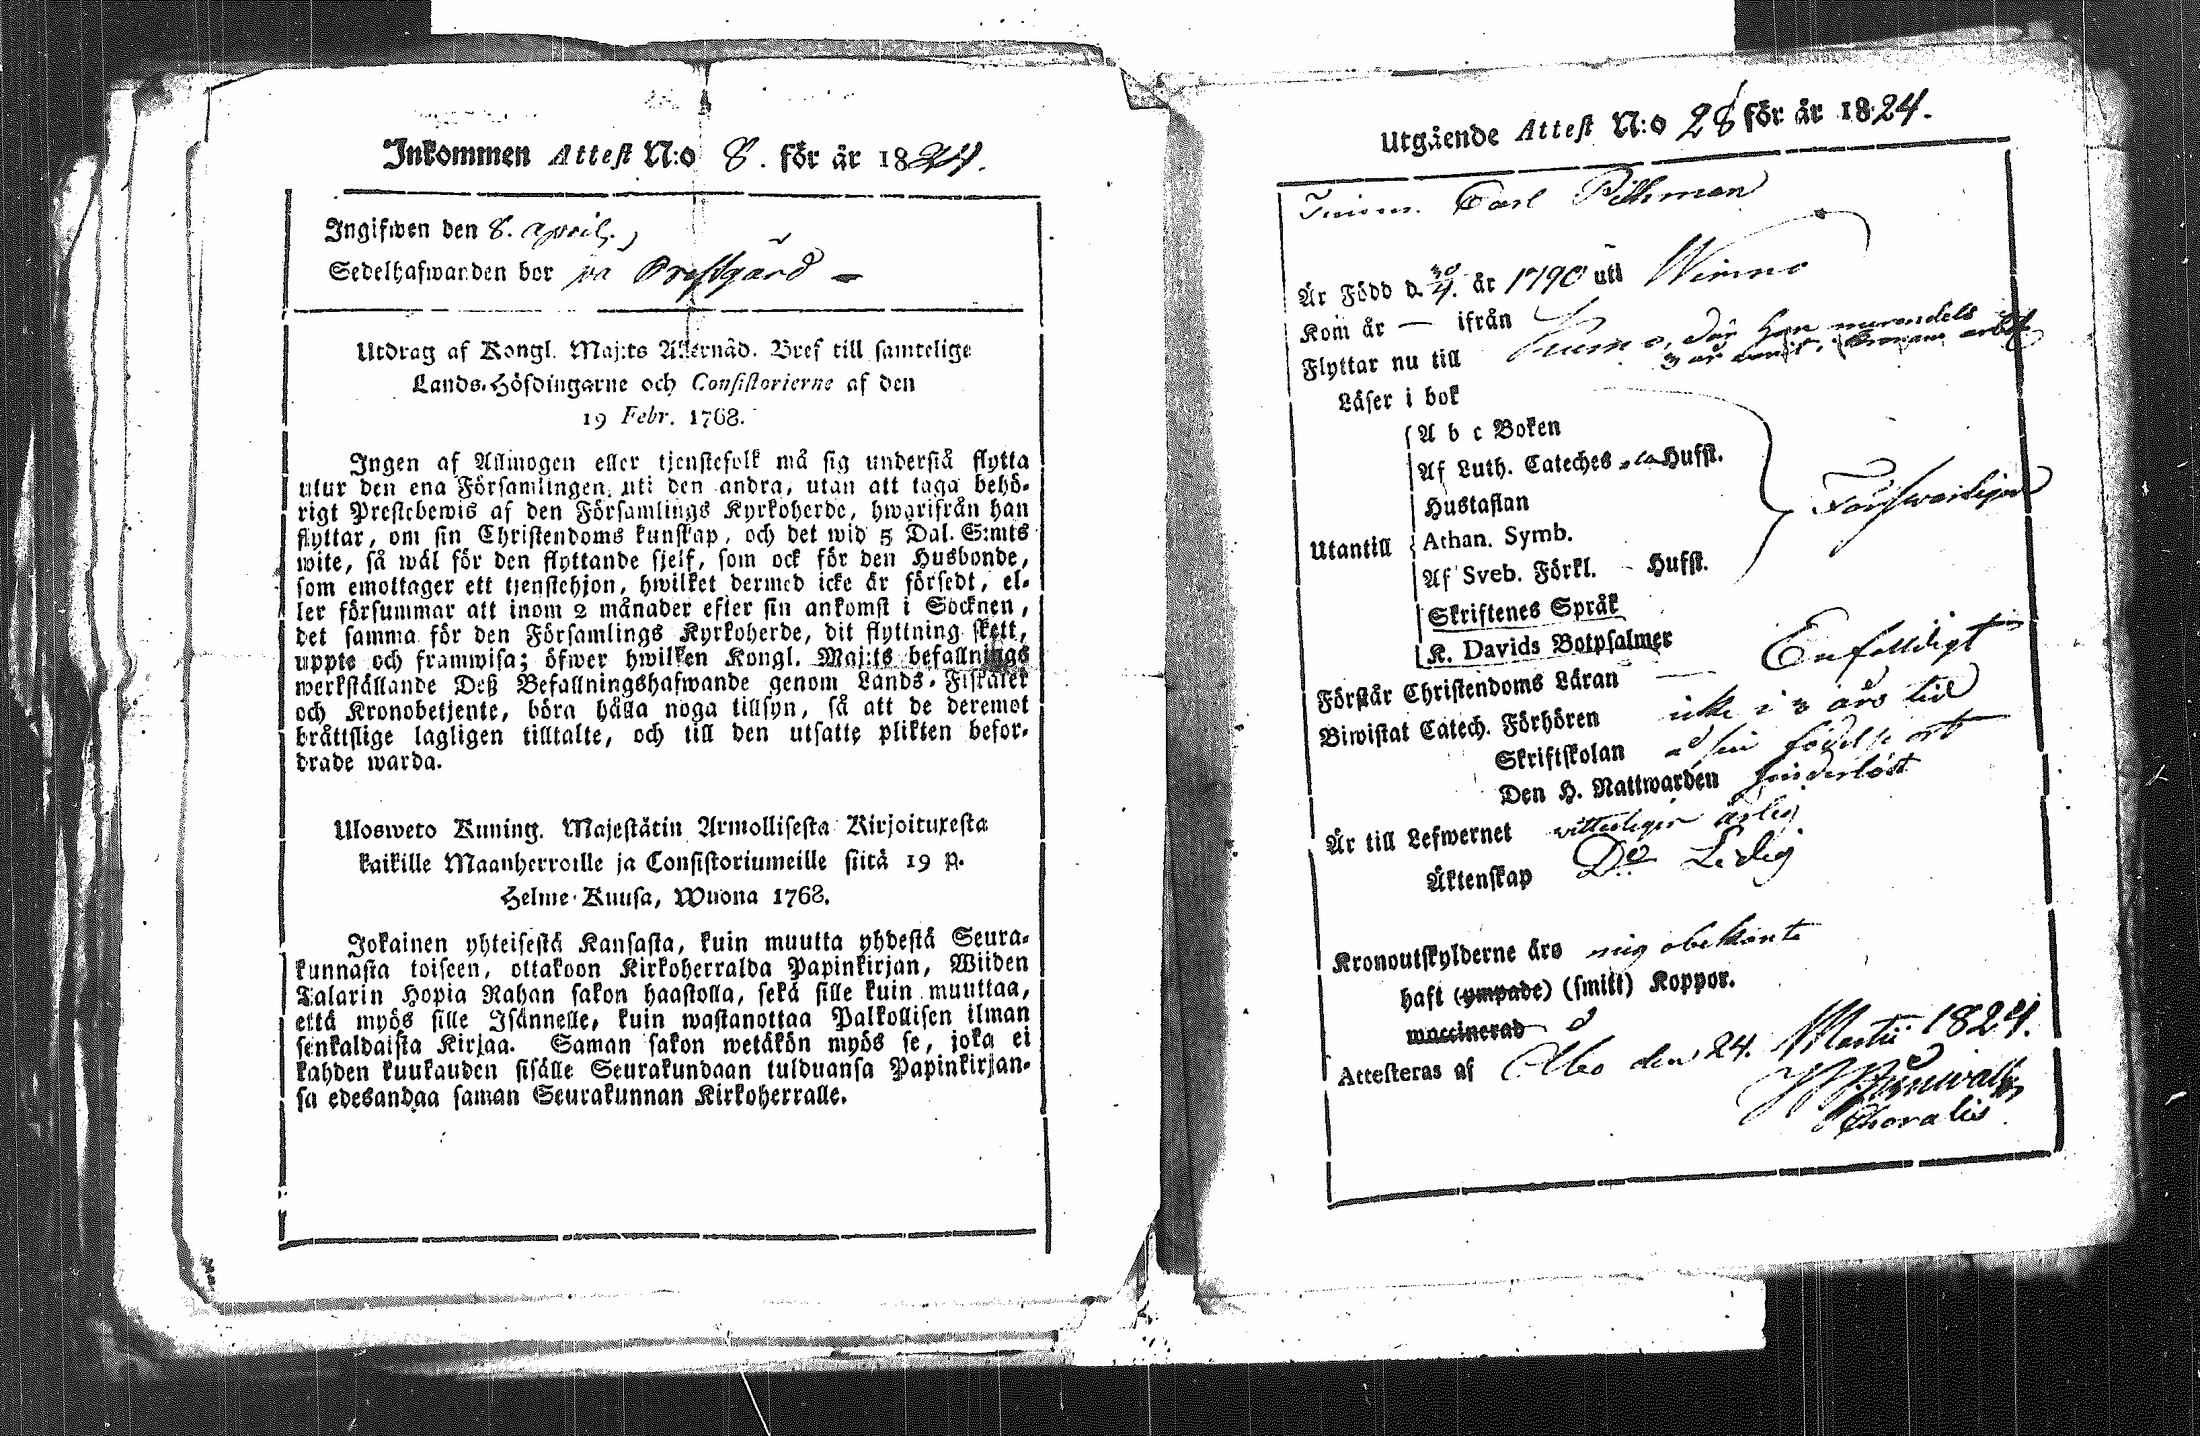 Inkommen Attest N:o 8. för år 1824.
Ingifwen den 8. april.
Sedelhafwanden bor på Prestgård
Utdrag af Kongl. Maj:ts Allernåd. Bref till samtelige
Lands-Höfdingarne och Consistorierne af den
19 Febr. 1768.
Ingen af Allmogen eller tjenstefolk må sig understå flytta
utur den ena Församlingen uti den andra, utan att taga behö-
rigt Prestebewis af den Församlings Kyrkoherde, hwarifrån han
flyttar, om sin Christendoms kunskap, och det wid 5 Dal. S:mts
wite, så wäl för den flyttande sjelf, som ock för den Husbonde,
som emottager ett tjenstehjon, hwilket dermed icke är försedt, el-
ler försummar att inom 2 månader efter sin ankomst i Socknen,
det samma för den Församlings Kyrkoherde, dit flyttning skett,
uppte och framwisa; öfwer hwilken Kongl. Maj:ts befallnings
werkställande Deß Befallningshafwande genom Lands-Fiskaler
och Kronobetjente, böra hålla noga tillsyn, så att de deremot
bråttslige lagligen tilltalte, och till den utsatte plikten befor-
drade warda.
Ulosweto Kuning. Majestätin Armollisesta Kirjoituxesta
kaikille Maanherroille ja Consistoriumeille siitä 19 p.
Helme-Kuusa, Wuona 1768.
Jokainen yhteisestä Kansasta, kuin muutta yhdestä Seura-
kunnasta toiseen, ottakoon Kirkoherralda Papinkirjan, Wiiden
Talarin Hopia Rahan sakon haastolla, sekä sille kuin muuttaa,
että myös sille Isännelle, kuin wastanottaa Palkollisen ilman
senkaldaista Kirjaa. Saman sakon wetäkön myös se, joka ei
kahden kuukauden sisälle Seurakundaan tulduansa Papinkirjan-
sa edesandaa saman Seurakunnan Kirkoherralle.
Utgående Attest N:o 28 för år 1824.
Carl Pihlman
Är Född d. 30/4. år 1790 uti Wirmo
Kom år — ifrån
Flyttar nu till Kumo, där han
3 år warit i Kronans arbet
Läser i bok
A b c Boken
Af Luth. Cateches Husst.
Hustaflan
Utantill Athan. Symb.
Af Sveb. Förkl. Husst.
Försvarligen
Skriftenes Språk
K. Davids Botpsalmer
Förstår Christendoms Läran Enfalldigt
Biwistat Catech. Förhören icke i 3 års tid
Skriftskolan å sin födelse ort
Den H. Nattwarden hinderlöst
Är till Lefwernet vitterligen ärlig
Äktenskap Do Ledig
Kronoutskylderne äro mig obekante
haft (ympade) (smitt) Koppor.
waccinerad
Attesteras af Åbo den 24. Martii 1824.